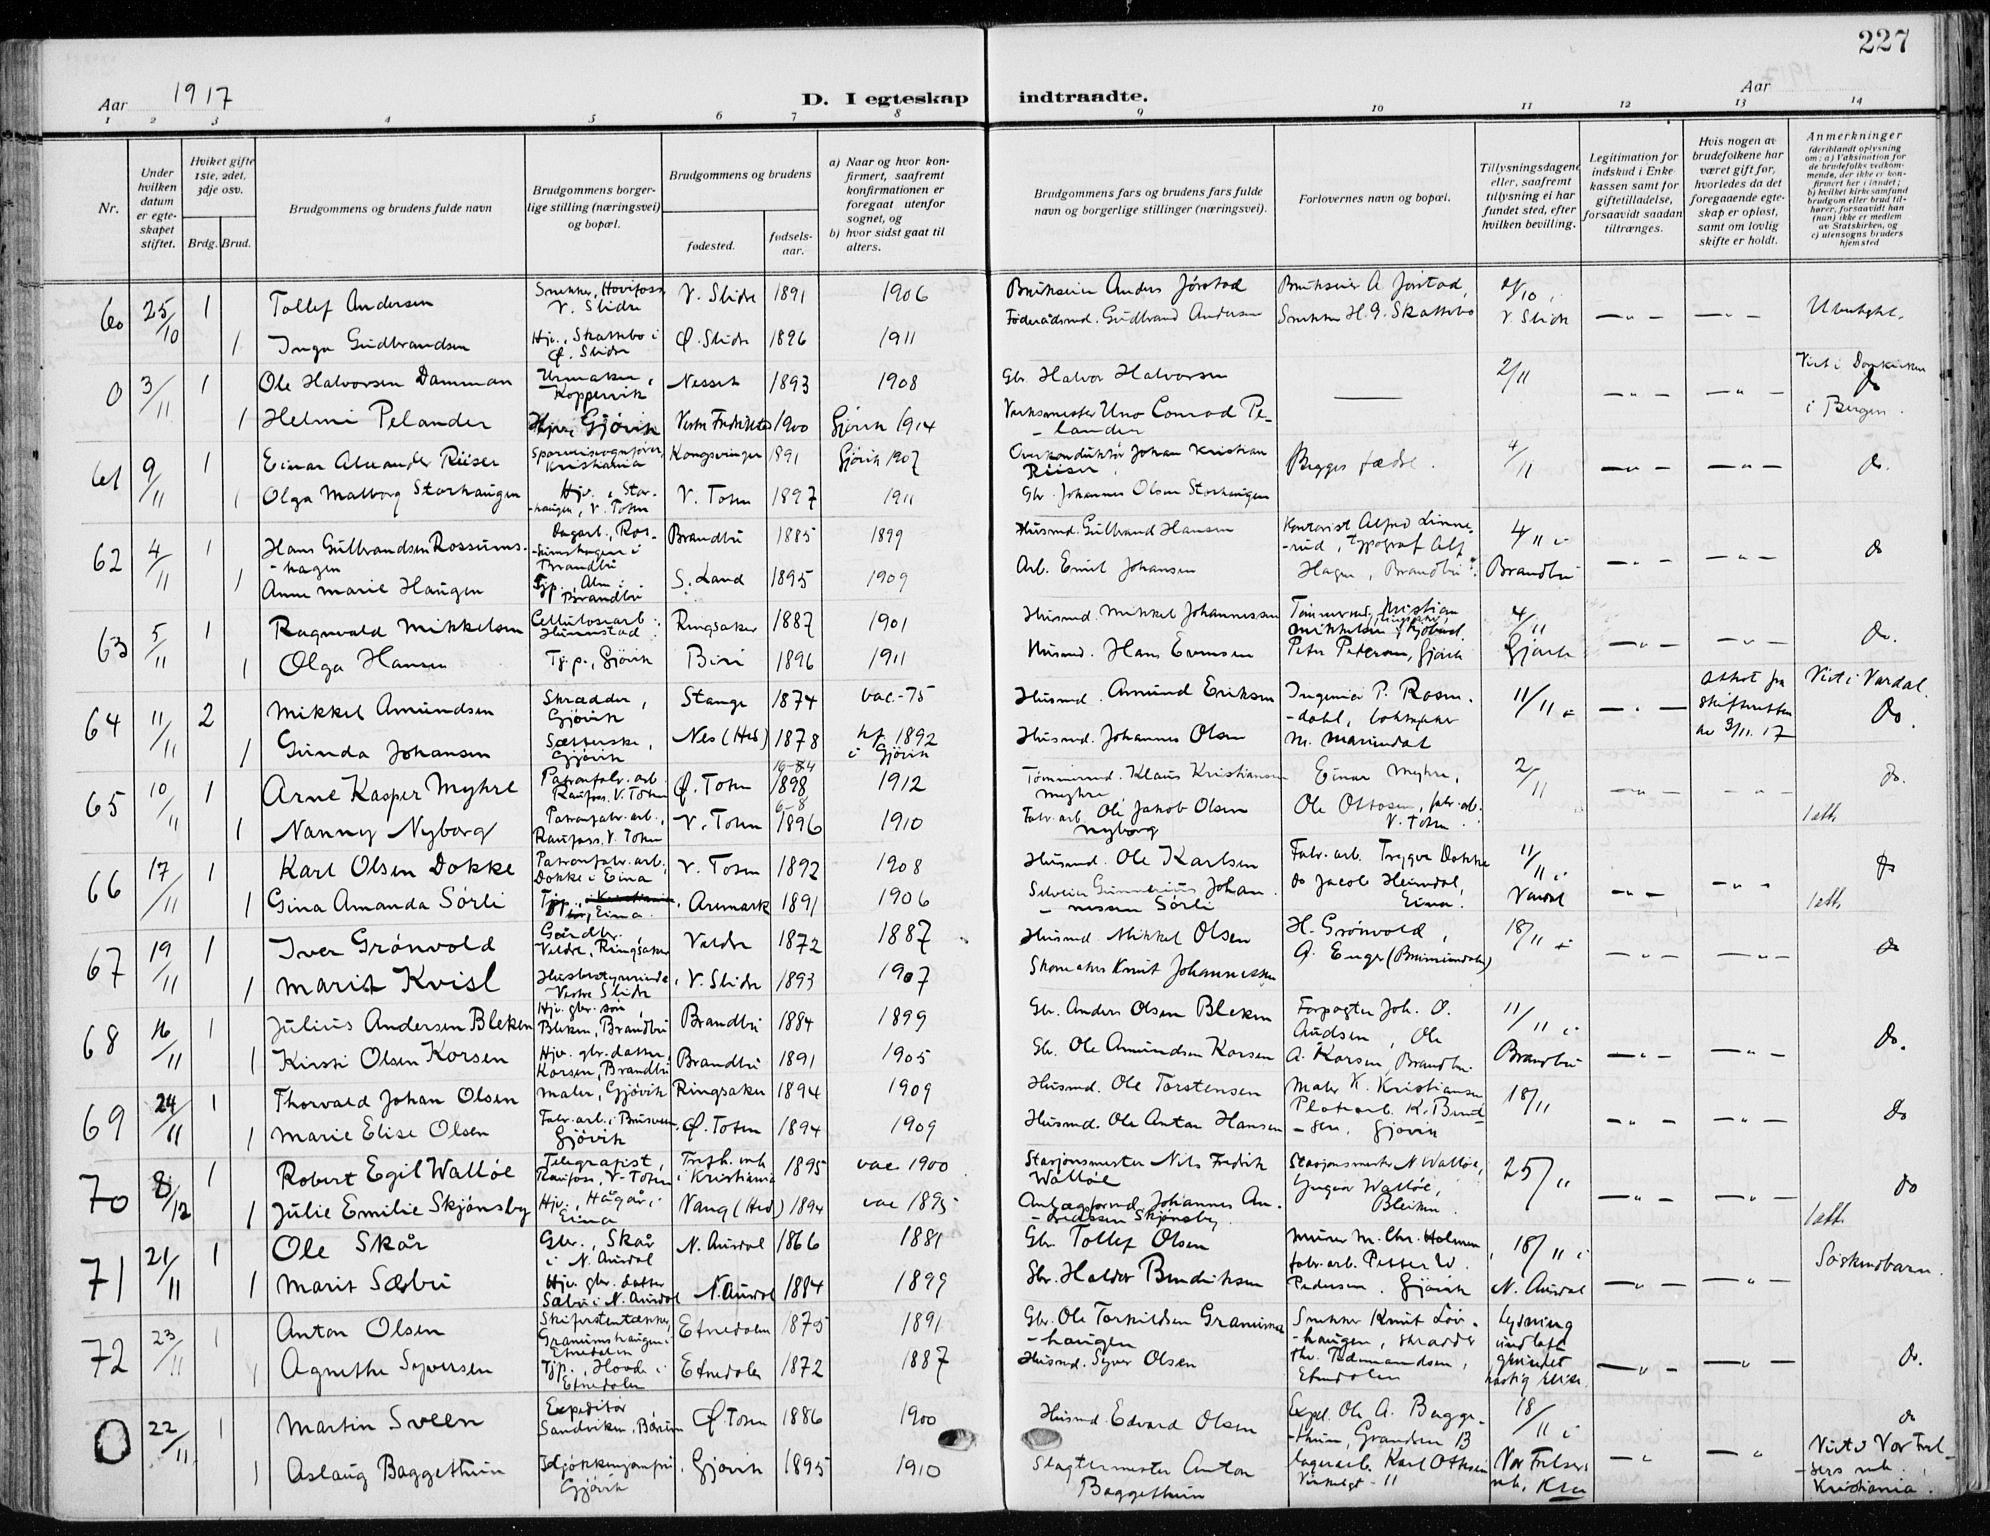 227
Aar 1917
D. I egteskap indtraadte.
Aar
1 2 3 4 5 6 7 8 9 10 11 12 13 14
Nr.
Under hvilken datum er egteskapet stiftet.
Hviket gifte 1ste, 2det, 3dje osv.
Brdg. Brud.
Brudgommens og brudens fulde navn
Brudgommens borgerlige stilling (næringsvei) og bopæl.
Brudgommens og brudens
fødested.
fødselsaar.
a) Naar og hvor konfirmert, saafremt konfirmationen er foregaat utenfor sognet, og
b) hvor sidst gaat til alters.
Brudgommens fars og brudens fars fulde navn og borgerlige stillinger (næringsvei).
Forlovernes navn og bopæl.
Tillysningsdagene eller, saafremt tillysning ei har fundet sted, efter hvilken bevilling.
Legitimation for indskud i Enkekassen samt for giftetilladelse, forsaavidt saadan tiltrænges.
Hvis nogen av brudefolkene har været gift før, hvorledes da det foregaaende egteskap er opløst, samt om lovlig skifte er holdt.
Anmerkninger (deriblandt oplysning om: a) Vaksination for de brudefolks vedkommende, der ikke er konfirmert her i landet; b) hvilket kirkesamfund brudgom eller brud tilhører, forsaavidt han (hun) ikke er medlem av Statskirken, og c) utensogns bruders hjemsted
60 25/10 1 Tollef Andersen Snekker, Hovifoss, V. Slidre V. Slidre 1891 1906 Brukseier Anders Jørstad Brukseier A Jørstad,
1 Inga Gudbrandsen Hjv., Skattebo i Ø. Slidre Ø. Slidre 1896 1911 Føderaadsmd. Gudbrand Andersen Snekker H. G. Skattebo V Slidre Ubeslegtet.
0 3/11 1 Ole Halvorsen Damman Urmaker, Koppervik Nesset 1893 1908 Gbr Halvor Halvorsen 2/11
1 Helmi Pelander Hjv. Gjøvik 1900 Gjøvik 1914 Verksmester Uno Conrad Pelander Viet i Domkirken i Bergen.
61 9/11 1 Einar Alexander Riiser Kristiania Kongsvinger 1891 Gjøvik 1907 Overkonduktør Johan Kristian Riiser Begges fædre. 4/11 do.
1 Olga Malborg Storhaugen Hjv., Storhaugen, V. Toten V. Toten 1897 1911 Gbr. Johannes Olsen Storhaugen
62 4/11 1 Hans Gulbrandsen Rossumshagen Dagarb., Rossumshagen i Brandbu Brandbu 1885 1899 Husmd. Gulbrand Hansen Kontorist Alfred Linnerud, typograf Alf Hagen, Brandbu. 4/11 i Brandbu do
1 Anne Marie Haugen Tjp., Alm i Brandbu S. Land 1895 1909 Arb. Emil Johansen
63 5/11 1 Ragnvald Mikkelsen Cellulosearb. Hunnstad Ringsaker 1887 1901 Husmd. Mikkel Johannessen Tømmermd. Kristian Mikkelsen 4/11 Gjøvik do.
1 Olga Hansen Tj.p., Gjøvik Biri 1896 1911 Husmd. Hans Evensen Peter Pedersen, Gjøvik
64 11/11 2 Mikkel Amundsen Skrædder, Gjøvik Stange 1874 vac.-75 Husmd. Amund Eriksen Ingeniør P. Rosendahl, M. Marundal 11/11 Attest fra skifteretten av 9/11. 17 Viet i Vardal. Do.
1 Gunda Johansen Gjøvik Nes (Hed) 1878 kf 1892 i Gjøvik Husmd. Johannes Olsen
65 10/11 1 Arne Kasper Myhre Patronfabr. arb. Raufoss. V. Toten Ø. Toten 1898 1912 Tømmermd. Klaus Kristiansen Myhre Einar Myhre, 2/11 do.
1 Nanny Nyborg Patronfabr. arb., Raufoss, V. Toten V. Toten 1896 1910 Fabr. arb. Ole Jakob Olsen Nyborg Ole Ottosen, fabr. arb. V. Toten. 1 att.
66 17/11 1 Karl Olsen Dokke Patronfabr. arb. Dokke i Eina V. Toten 1892 1908 Husmd. Ole Karlsen Fabr. arb. Trygve Dokke 11/11 i Vardal do
1 Gina Amanda Sörli Tjp., Eina. Aremark 1891 1906 Selveier Gunnerius Johannessen Sörli do Jacob Heimdal, Eina. 1 att.
67 19/11 1 Iver Grønvold Gårdbr. Veldre, Ringsaker Veldre 1872 1887 Husmd. Mikkel Olsen H. Grønvold, 18/11 do
1 Marit Kvisl Husbestyrerinde, Vestre Slidre V. Slidre 1893 1907 Skomaker Knut Johannessen A. Enger (Brumunddalen)
68 16/11 1 Julius Andersen Bleken Hjv. gbr. søn, Bleken, Brandbu Brandbu 1884 1899 Gbr. Anders Olsen Bleken Forpagter Joh. O. Audsen, Ole A. Korsen, Brandbu. 11/11 i Brandbu do.
1 Kirsti Olsen Korsen Hjv. gbr. datter, Korsen, Brandbu Brandbu 1891 1905 Gbr. Ole Amundsen Korsen
69 24/11 1 Thorvald Johan Olsen Maler, Gjøvik Ringsaker 1894 1909 Husmd. Ole Torstensen Maler K. Kristiansen 18/11 do
1 Marie Elise Olsen Fabr. arb. i Brusveen, Gjøvik Ø. Toten 1894 1909 Husmd. Ole Anton Hansen Gjøvik
70 8/12 1 Robert Egil Walløe Telegrafist, Raufoss, V. Toten Trefh. mh i Kristiania 1895 vac 1900 Stasjonsmester Nils Fredrik Walløe Stasjonsmester N Walløe, 25/11 do
1 Julie Emilie Skjønsby Hjv., Hågår, Eina Vang (Hed) 1894 vac 1895 Anlægsformd. Johannes Andreassen Skjønsby Yngvar Walløe, Bleiken. 1 att.
71 21/11 1 Ole Skår Gbr., Skår i N. Aurdal N. Aurdal 1866 1881 Gbr Tollef Olsen Murer M. Chr. Holmen, 18/11 i N. Aurdal Søskendbarn.
1 Marit Sæbu Hjv. gbr. datter Sæbu i N. Aurdal N. Aurdal 1884 1899 Gbr. Haldor Bendriksen fabr. arb. Petter W. Pedersen. Gjøvik
72 23/11 1 Anton Olsen Granumshaugen i Etnedalen Etnedalen 1875 1891 Gbr. Ole Torkildsen Granumshaugen Snekker Knut Løvhaugen, skrædder Lysning undlatt grundet hastig reise. do.
1 Agnethe Syversen Tjp., Hovde i Etnedalen Etnedalen 1872 1887 Husmd. Syver Olsen Etnedalen
0 22/11 1 Martin Sveen Expeditør Sandviken, Bærum Ø. Toten 1886 1900 Husmd. Edvard Olsen Expd. Ole A. Baggethun, Grandsen 13 18/11 i Vor Frelsers mh, Kra do
1 Aslaug Baggethun Gjøvik Gjøvik 1895 1910 Slagtermester Anton Baggethun Lagerarb. Karl Ottesen 11 Viet i Vor Frelsers mh. Kristiania.